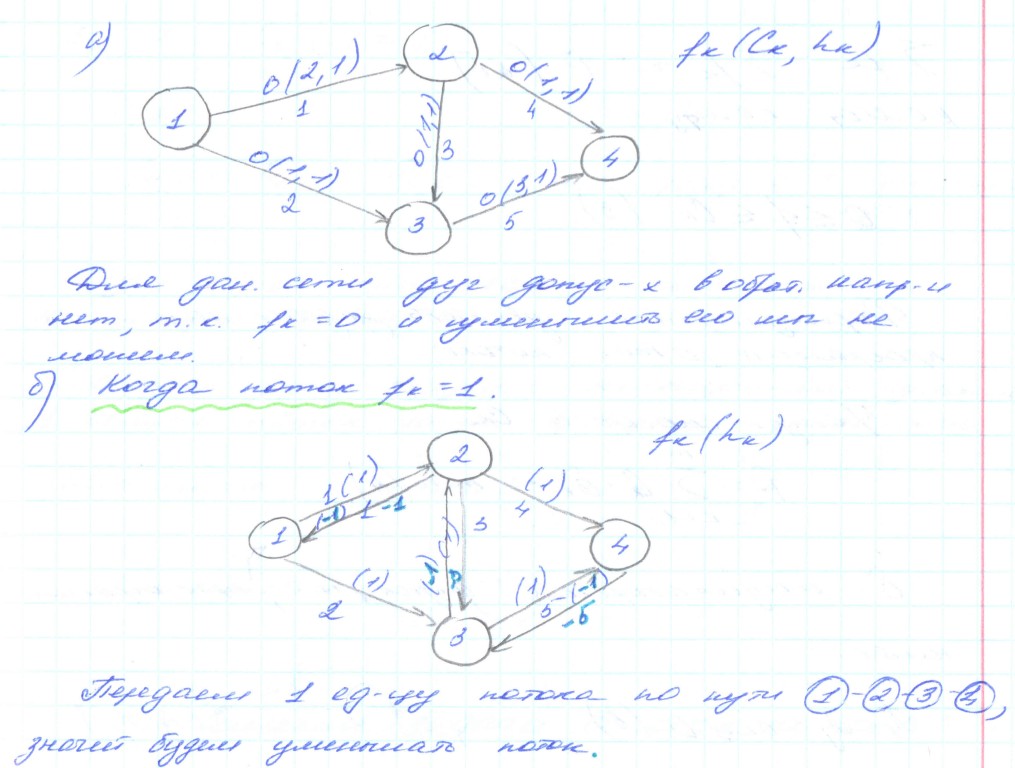 а)
fк (Cк, hк)
2
0(2,1)
0(1,1)
1
1
4
0(1,1)
3
4
0(1,1)
2
0(3,1)
5
3
Для дан. сети дуг допус-х в обрат. напр-и
нет, т.к. fк =0 и уменьшить его мы не
можем.
б) Когда поток fк =1.
fк (hк)
2
1(1)
(1)
(-1) 1 -1
3
4
1
4
(1)
(-1)
(1)
(1)
2
5-(-1)
-5
3
Передаем 1 ед-цу потока по пути 1-2-3-4,
значит будем уменьшать поток.